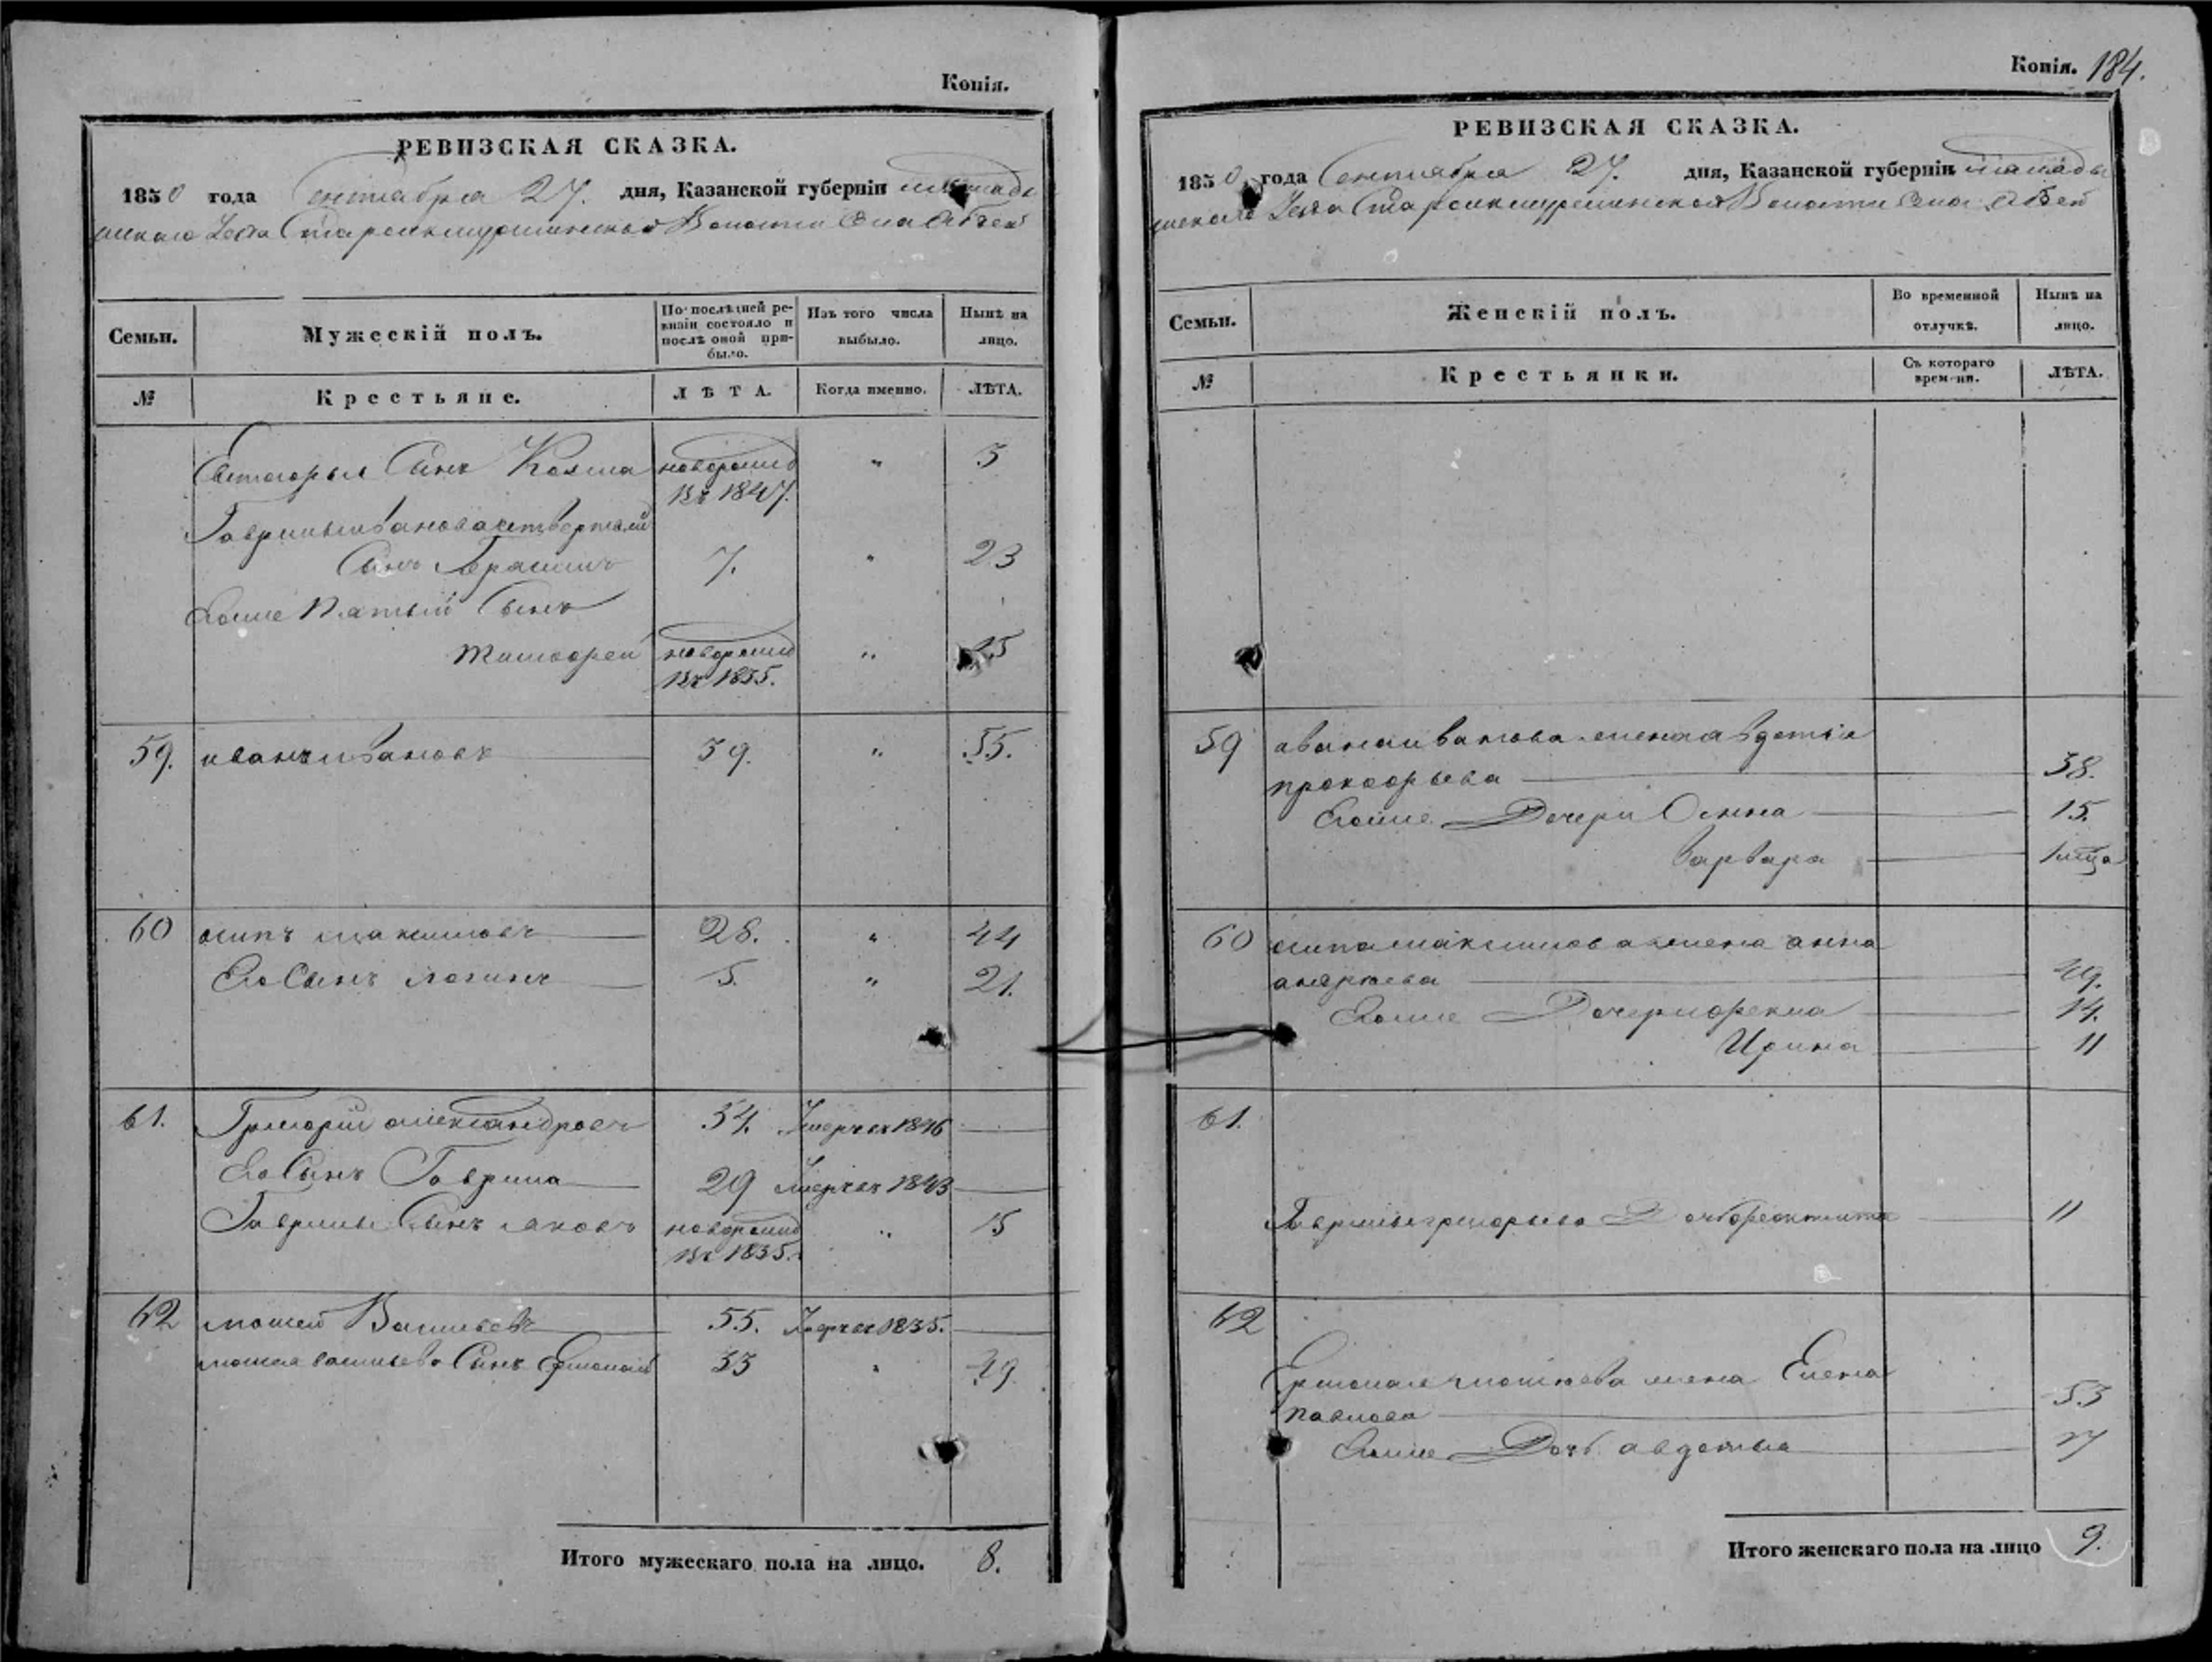 Копія.
РЕВИЗСКАЯ СКАЗКА.
1850 года Сентября 27. дня, Казанской губерніи мамады
шскаго Уезда Старокмурминской Волости Села Абъев
Семьи.
Мужескій полъ.
По послѣдней ре-
визіи состояло и
послѣ оной при-
было.
Изъ того числа
выбыло.
Нынѣ на
лицо.
№
Крестьяне.
ЛѢТА.
Когда именно.
ЛѢТА.
Сынъ Козма новорожд „ 3
въ 1847.
Гаврилы иванова четвертый
Сынъ 7. „ 23
Егоже Пятый Сынъ
Тимофей новорожд „ 15
въ 1835.
59. иванъ ивановъ 39. „ 55.
60 осипъ максимовъ 28. „ 44
Его Сынъ логинъ 5. „ 21.
61. Григорій александровъ 54. Умеръ въ 1846
Его Сынъ Гаврила 29 Умеръ въ 1843
Гаврилы Сынъ яковъ новорожд „ 15
въ 1835.
62 мосей Васильевъ 55. Умеръ въ 1835.
мосея васильева Сынъ Ермолай 33 „ 49.
Итого мужескаго пола на лицо. 8.
Копія. 184.
РЕВИЗСКАЯ СКАЗКА.
1850 года Сентября 27. дня, Казанской губерніи мамады
шскаго Уезда Старокмурминской Волости Села Абъев
Семьи.
Женскій полъ.
Во временной
отлучкѣ.
Нынѣ на
лицо.
№
Крестьянки.
Съ котораго
времени.
ЛѢТА.
59 ивана иванова жена авдотья
прокофьева 38.
Егоже Дочери Анна 15.
варвара
60 осипа максимова жена анна
андреева 49.
Егоже Дочери фекла 14.
Ирина 11
61.
Гаврилы григорьева Дочь 11
62
Ермолая мосеева жена Елена
павлова 53
Егоже Дочь авдотья 17
Итого женскаго пола на лицо 9.